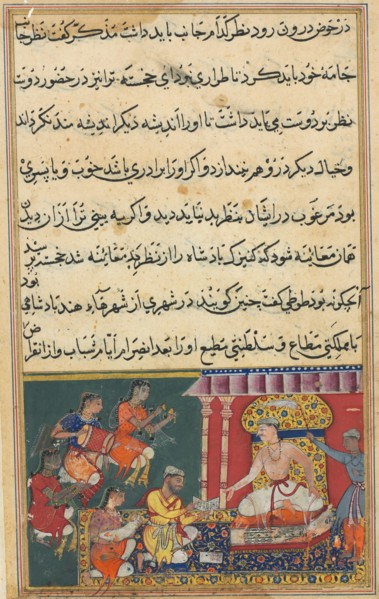 در حوض درون رود نظر کدام جانب باید داشت مذکر گفت نظر جا
جامهٔ خود باید کرد تا طراری نبرد ای خجسته ترا نیز در حضور دوست
نظر بر دوست می باید داشت تا او را اندیشه دیگر اندیشه مند نگرداند
و خیال دیگر در و وهم نیندازد و اگر او را برادری باشد خوب و یا پسری
بود مرغوب در ایشان بنظر بد نباید دید و اگر به بینی ترا از آن دیدن
همان معاینه شود که کنیزک بادشاه را از نظر بد معاینه شد خجسته پرسید
آنچگونه بود طوطی گفت چنین گویند در شهری از شهرهاء هند بادشاهی بود
با مملکتی مطاع و سلطنتی مطیع او را بعد انصرام ایام شباب و از انقراض